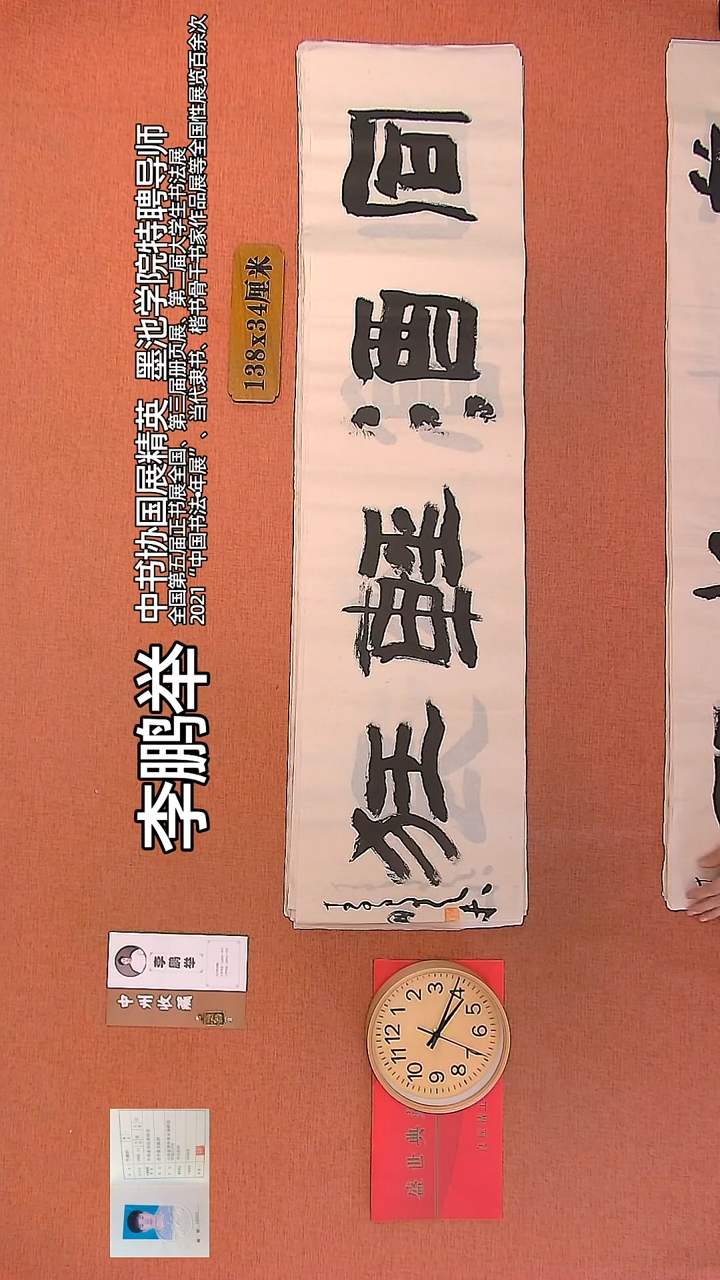 李鹏举
中书协国展精英 墨池学院特聘导师
全国第五届正书展全国、第三届册页展、第二届大学生书法展
2021“中国书法·年展”、当代隶书、楷书骨干书家作品展等全国性展览百余次
138x34厘米
間酒輕狂
李鹏举
中州收藏
12
1
2
3
4
5
6
7
8
9
10
11
盛世典